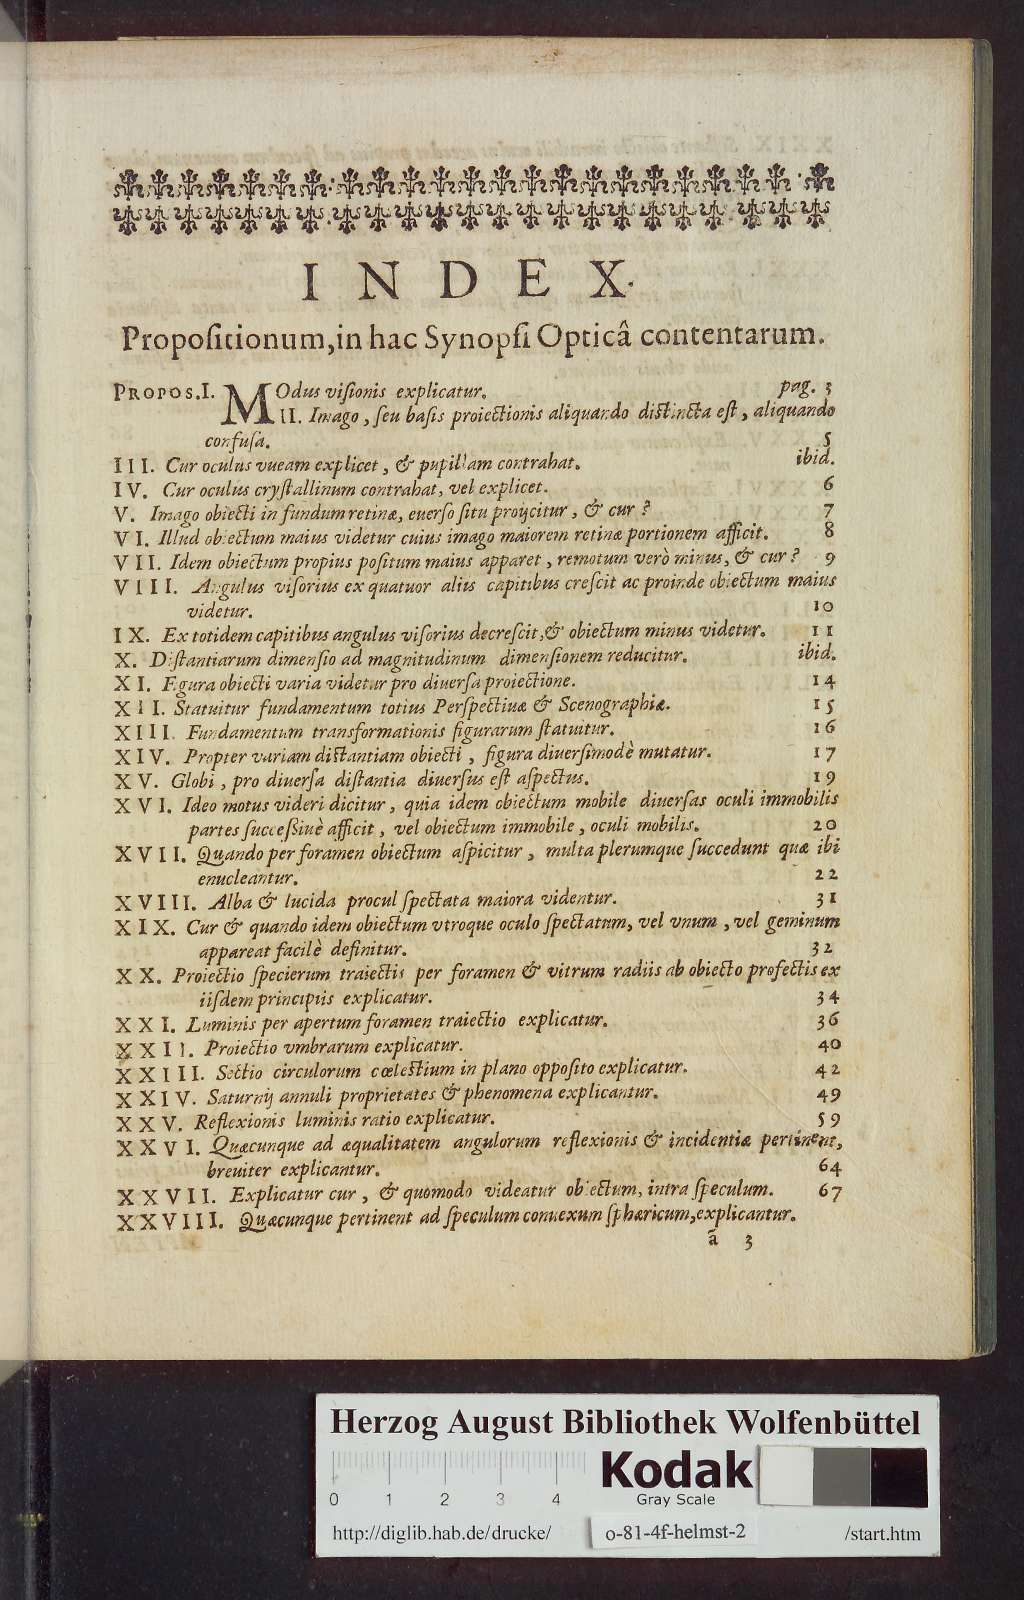 INDEX.
Propoſitionum, in hac Synopſi Opticâ contentarum.
PROPOS. I. MOdus viſionis explicatur. pag. 3
II. Imago, ſeu baſis proiectionis aliquando diſtincta eſt, aliquando
confuſa. 5
III. Cur oculus vueam explicet, & pupillam contrahat. ibid.
IV. Cur oculus cryſtallinum contrahat, vel explicet. 6
V. Imago obiecti in fundum retinæ, euerſo ſitu proijcitur, & cur? 7
VI. Illud obiectum maius videtur cuius imago maiorem retinæ portionem afficit. 8
VII. Idem obiectum propius poſitum maius apparet, remotum verò minus, & cur? 9
VIII. Angulus viſorius ex quatuor aliis capitibus creſcit ac proinde obiectum maius
videtur. 10
IX. Ex totidem capitibus angulus viſorius decreſcit, & obiectum minus videtur. 11
X. Diſtantiarum dimenſio ad magnitudinum dimenſionem reducitur. ibid.
XI. Figura obiecti varia videtur pro diuerſa proiectione. 14
XII. Statuitur fundamentum totius Perſpectiuæ & Scenographiæ. 15
XIII. Fundamentum transformationis figurarum ſtatuitur. 16
XIV. Propter variam diſtantiam obiecti, figura diuerſimodè mutatur. 17
XV. Globi, pro diuerſa diſtantia diuerſus eſt aſpectus. 19
XVI. Ideo motus videri dicitur, quia idem obiectum mobile diuerſas oculi immobilis
partes ſucceſſiuè afficit, vel obiectum immobile, oculi mobilis. 20
XVII. Quando per foramen obiectum aſpicitur, multa plerumque ſuccedunt quæ ibi
enucleantur. 22
XVIII. Alba & lucida procul ſpectata maiora videntur. 31
XIX. Cur & quando idem obiectum vtroque oculo ſpectatum, vel vnum, vel geminum
appareat facilè definitur. 32
XX. Proiectio ſpecierum traiectis per foramen & vitrum radiis ab obiecto profectis ex
iiſdem principiis explicatur. 34
XXI. Luminis per apertum foramen traiectio explicatur. 36
XXII. Proiectio vmbrarum explicatur. 40
XXIII. Sectio circulorum cœleſtium in plano oppoſito explicatur. 42
XXIV. Saturnij annuli proprietates & phenomena explicantur. 49
XXV. Reflexionis luminis ratio explicatur. 59
XXVI. Quæcunque ad æqualitatem angulorum reflexionis & incidentiæ pertinent,
breuiter explicantur. 64
XXVII. Explicatur cur, & quomodo videatur obiectum, intra ſpeculum. 67
XXVIII. Quæcunque pertinent ad ſpeculum conuexum ſphæricum, explicantur.
ã 3
Herzog August Bibliothek Wolfenbüttel
Kodak
0 1 2 3 4
Gray Scale
http://diglib.hab.de/drucke/ o-81-4f-helmst-2 /start.htm